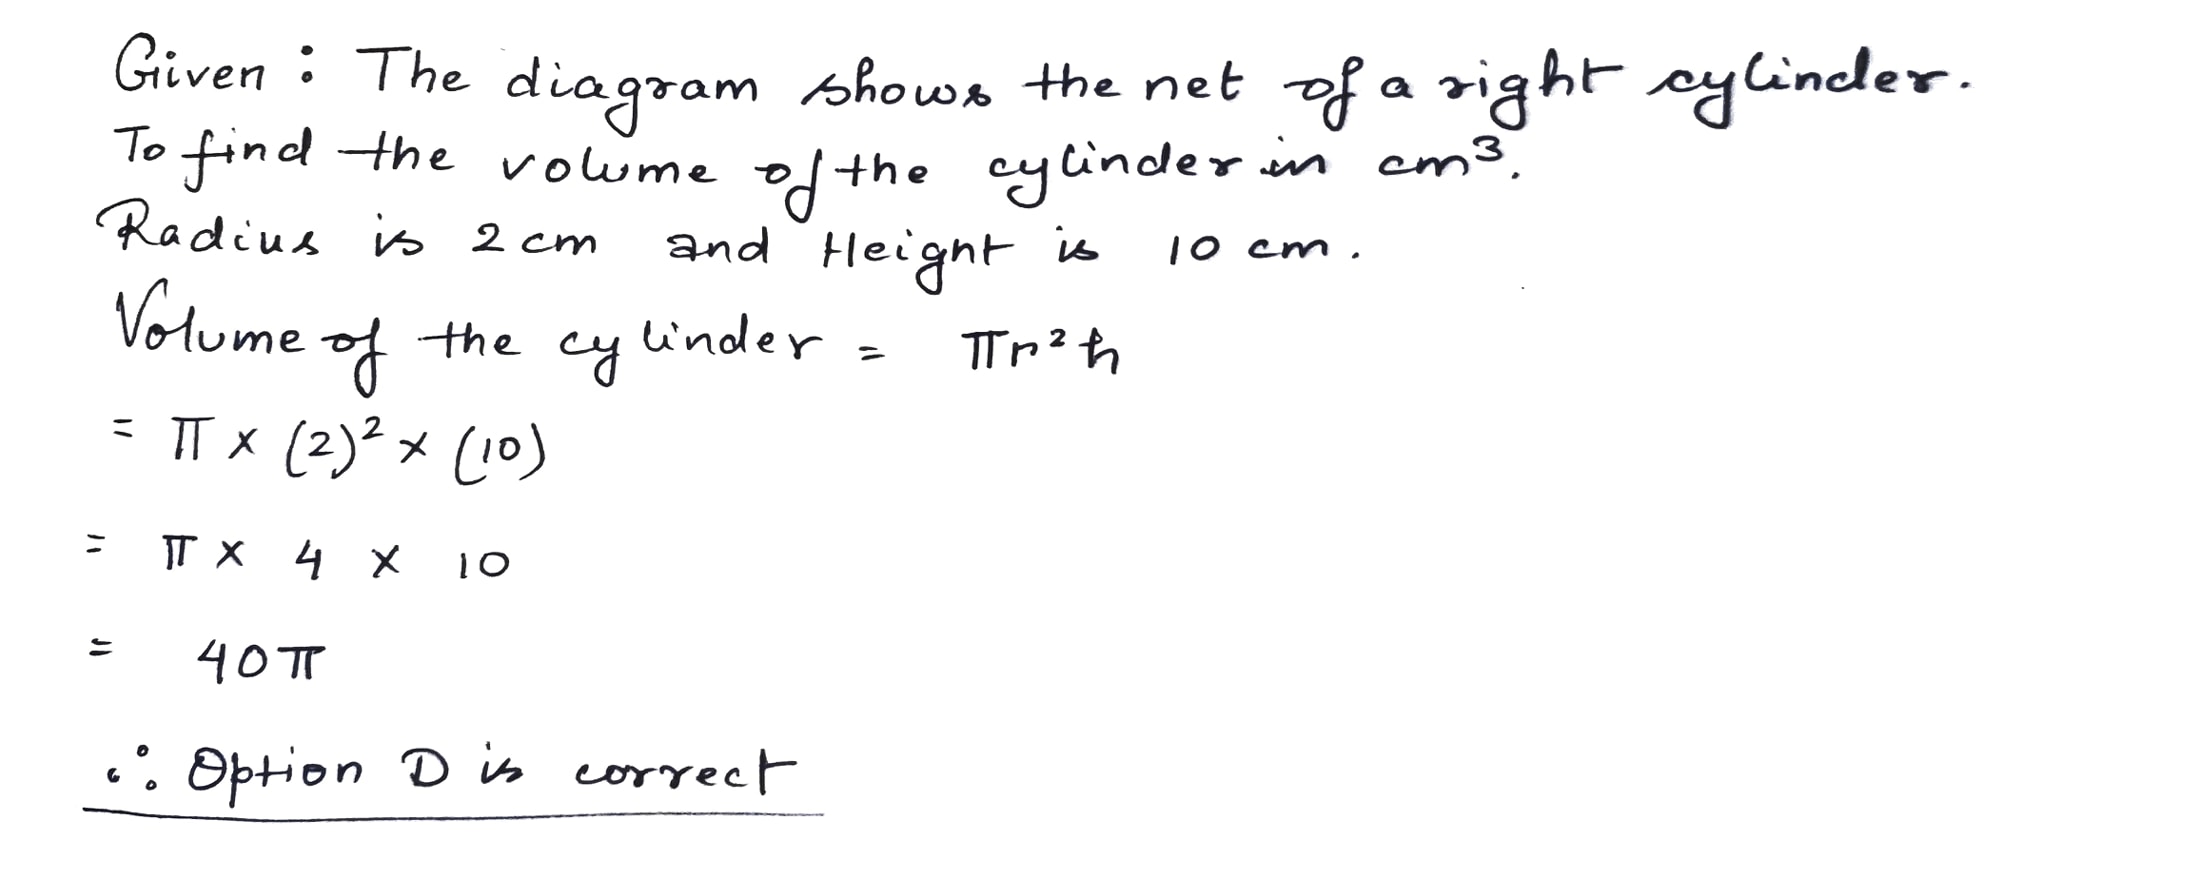 Given : The diagram shows the net of a right cylinder.
To find the volume of the cylinder in cm³.
Radius is 2 cm and Height is 10 cm.
Volume of the cylinder = πr²h
= π × (2)² × (10)
= π × 4 × 10
= 40π
∴ Option D is correct